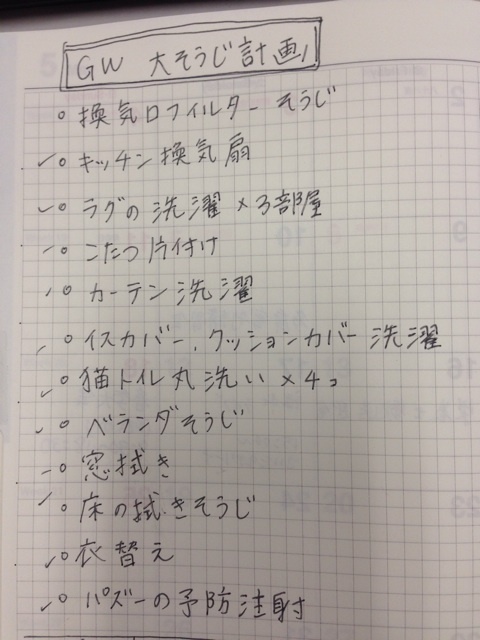 GW 大そうじ計画
◦ 換気口フィルター そうじ
✓◦ キッチン換気扇
✓◦ ラグの洗濯×3部屋
✓◦ こたつ片付け
✓◦ カーテン洗濯
✓◦ イスカバー、クッションカバー洗濯
✓◦ 猫トイレ丸洗い×4コ
✓◦ ベランダそうじ
✓◦ 窓拭き
✓◦ 床の拭きそうじ
✓◦ 衣替え
✓◦ パズーの予防注射